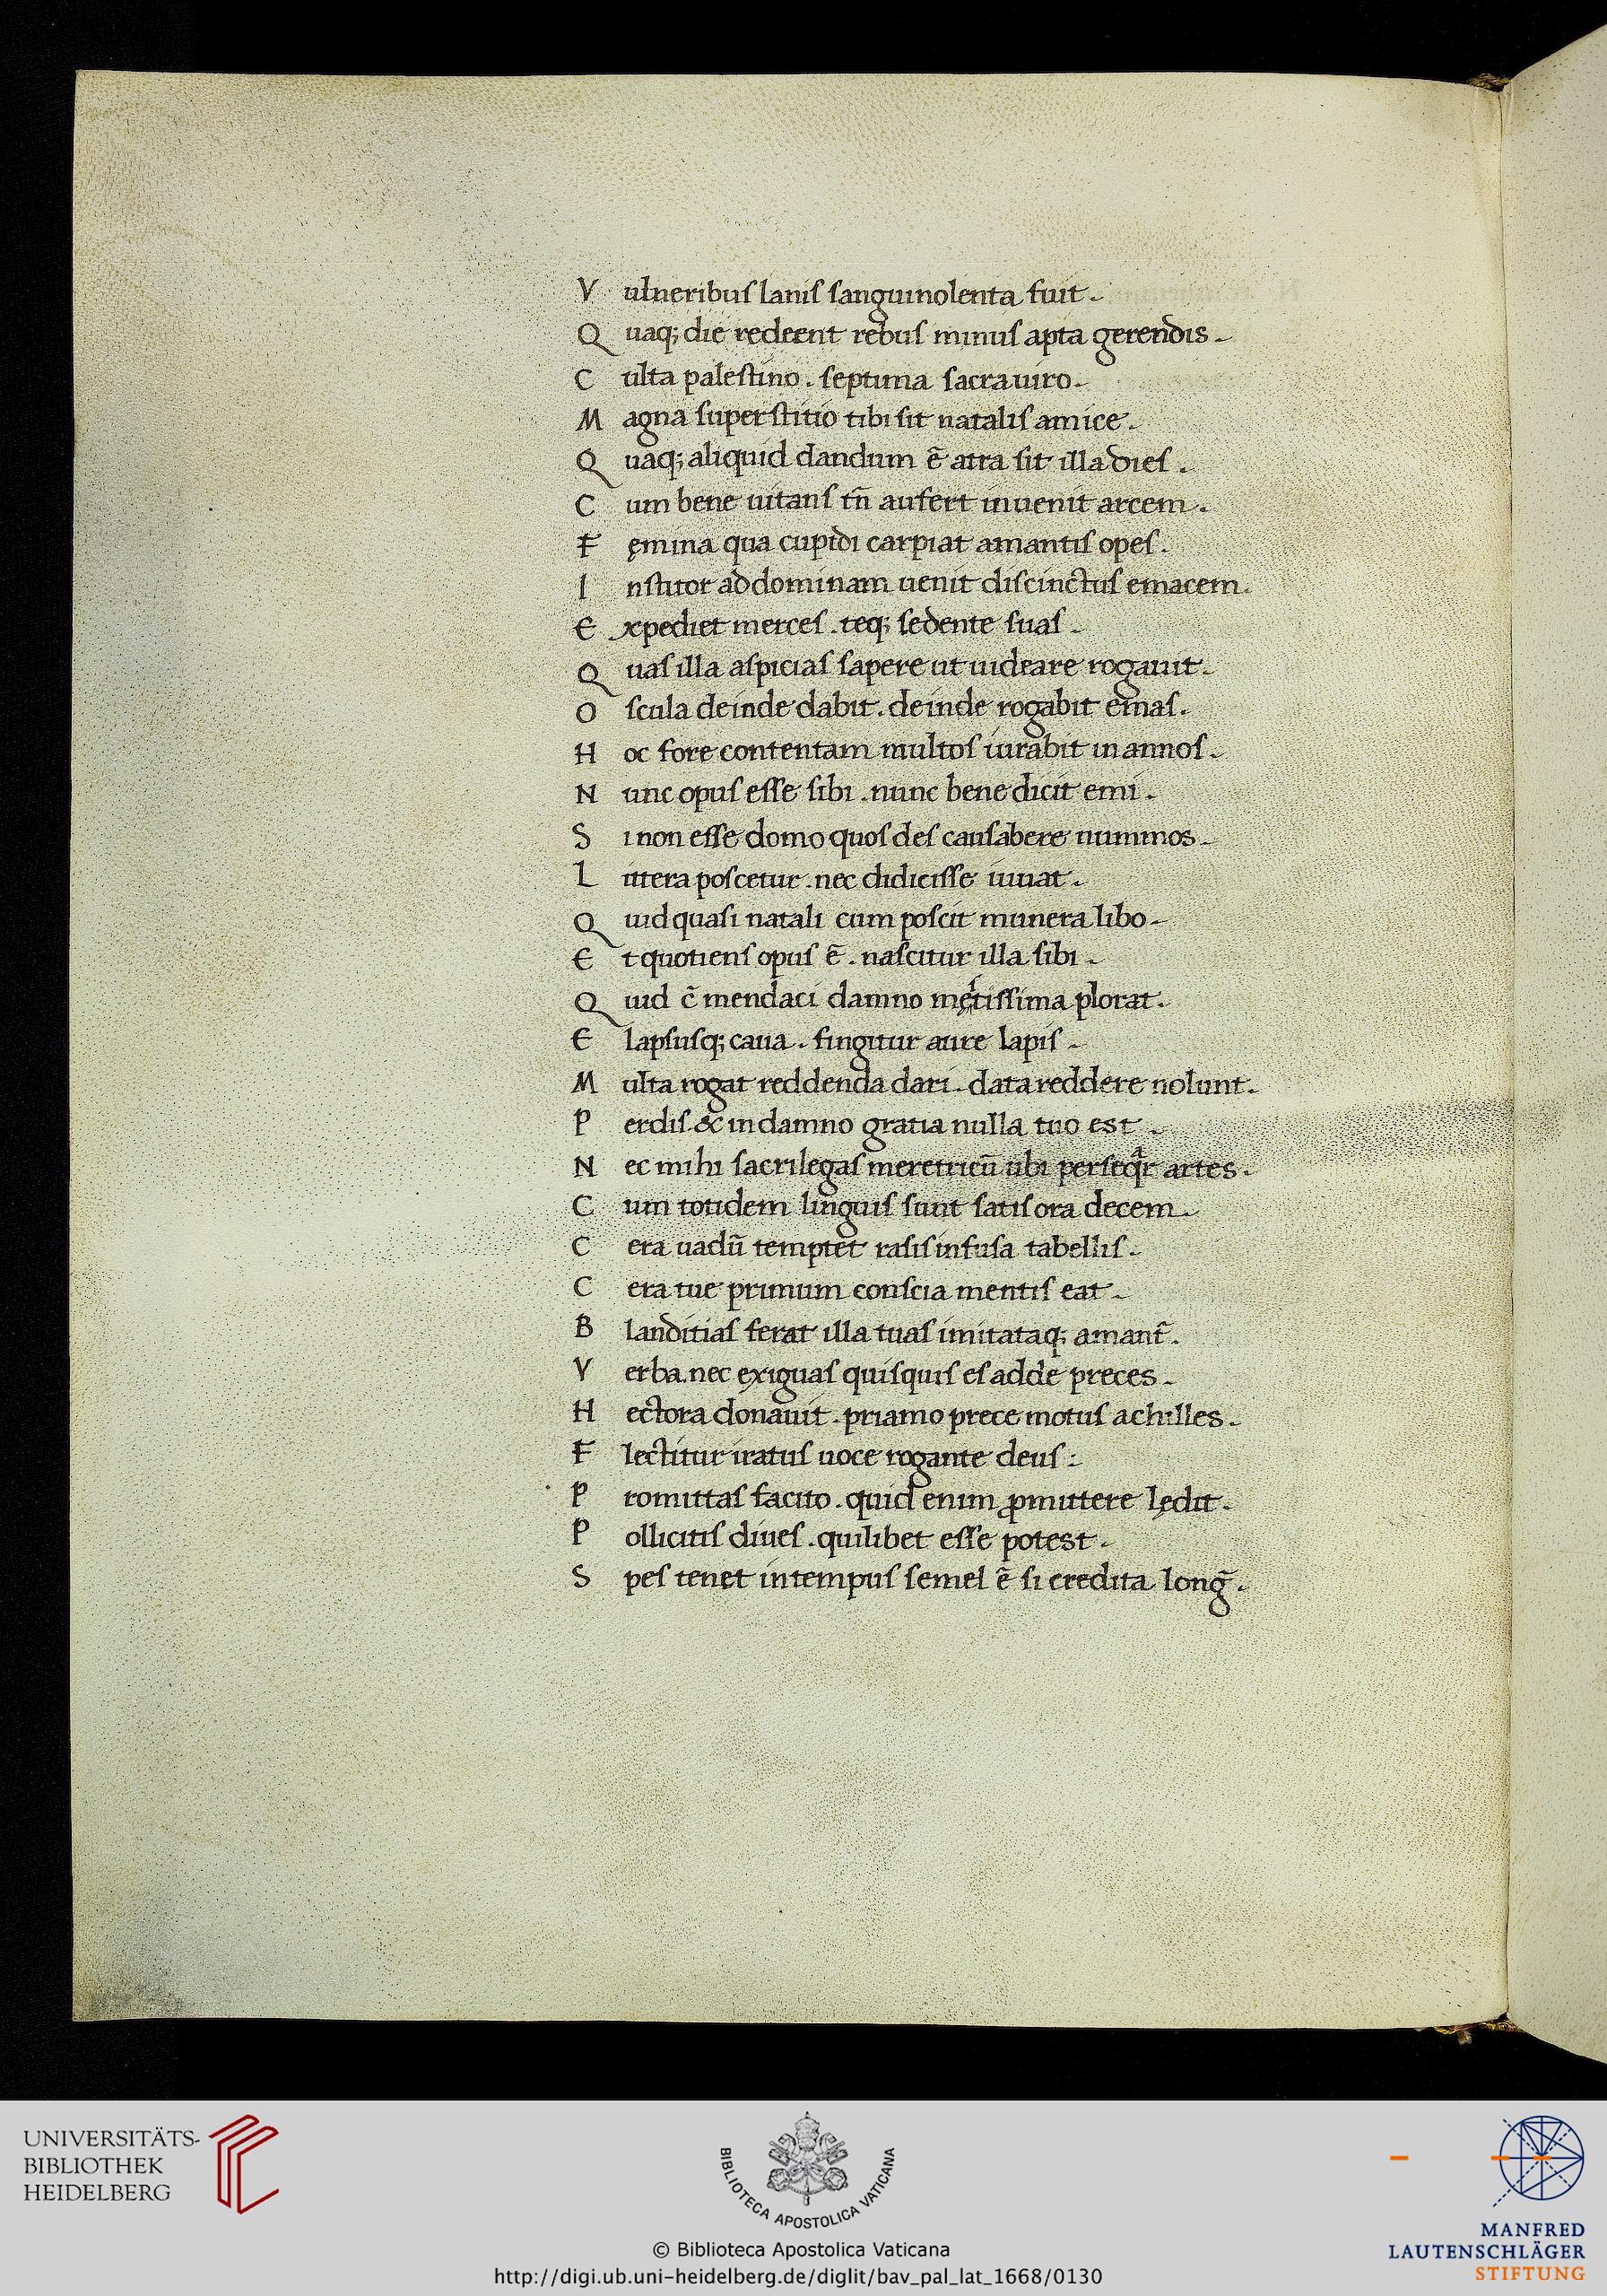 V ulneribuſ laniſ ſanguinolenta fuit.
Q uaq; die redeent rebuſ minuſ apta gerendis.
C ulta paleſtino. ſeptima ſacra uiro.
M agna ſuperſtitio tibi ſit nataliſ amice.
Q uaq; aliquid dandum ē atra ſit illa dieſ.
C um bene uitanſ tñ aufert inuenit arcem.
F ęmina qua cupidi carpiat amantiſ opeſ.
I nſtitor ad dominam uenit diſcinctuſ emacem.
E xpediet merceſ. teq; ſedente ſuaſ.
Q uaſ illa aſpiciaſ ſapere ut uideare rogauit.
O ſcula deinde dabit. deinde rogabit emaſ.
H oc fore contentam multoſ iurabit in annoſ.
N unc opuſ eſſe ſibi. nunc bene dicit emi.
S i non eſſe domo quoſ deſ cauſabere nummos.
L ittera poſcetur. nec didiciſſe iuuat.
Q uid quaſi natali cum poſcit munera libo.
E t quotienſ opuſ ē. naſcitur illa ſibi.
Q uid c̄ mendaci damno męſtiſſima plorat.
E lapſuſq; caua. fingitur aure lapiſ.
M ulta rogat reddenda dari. data reddere nolunt.
P erdiſ. & in damno gratia nulla tuo est.
N ec mihi ſacrilegaſ meretricū ubi perſeqr artes.
C um totidem linguiſ ſunt ſatiſ ora decem.
C era uadū temptet raſiſ infuſa tabelliſ.
C era tue primum conſcia mentiſ eat.
B landitiaſ ferat illa tuaſ imitataq; amant̄.
V erba. nec exiguaſ quiſquiſ eſ adde preces.
H ectora donauit. priamo prece motuſ achilles.
F lectitur iratuſ uoce rogante deuſ:
P romittaſ facito. quid enim ꝓmittere lędit.
P ollicitiſ diueſ. quilibet eſſe potest.
S peſ tenet in tempuſ ſemel ē ſi credita lonḡ.
UNIVERSITÄTS-
BIBLIOTHEK
HEIDELBERG
BIBLIOTECA APOSTOLICA VATICANA
© Biblioteca Apostolica Vaticana
http://digi.ub.uni-heidelberg.de/diglit/bav_pal_lat_1668/0130
MANFRED
LAUTENSCHLÄGER
STIFTUNG